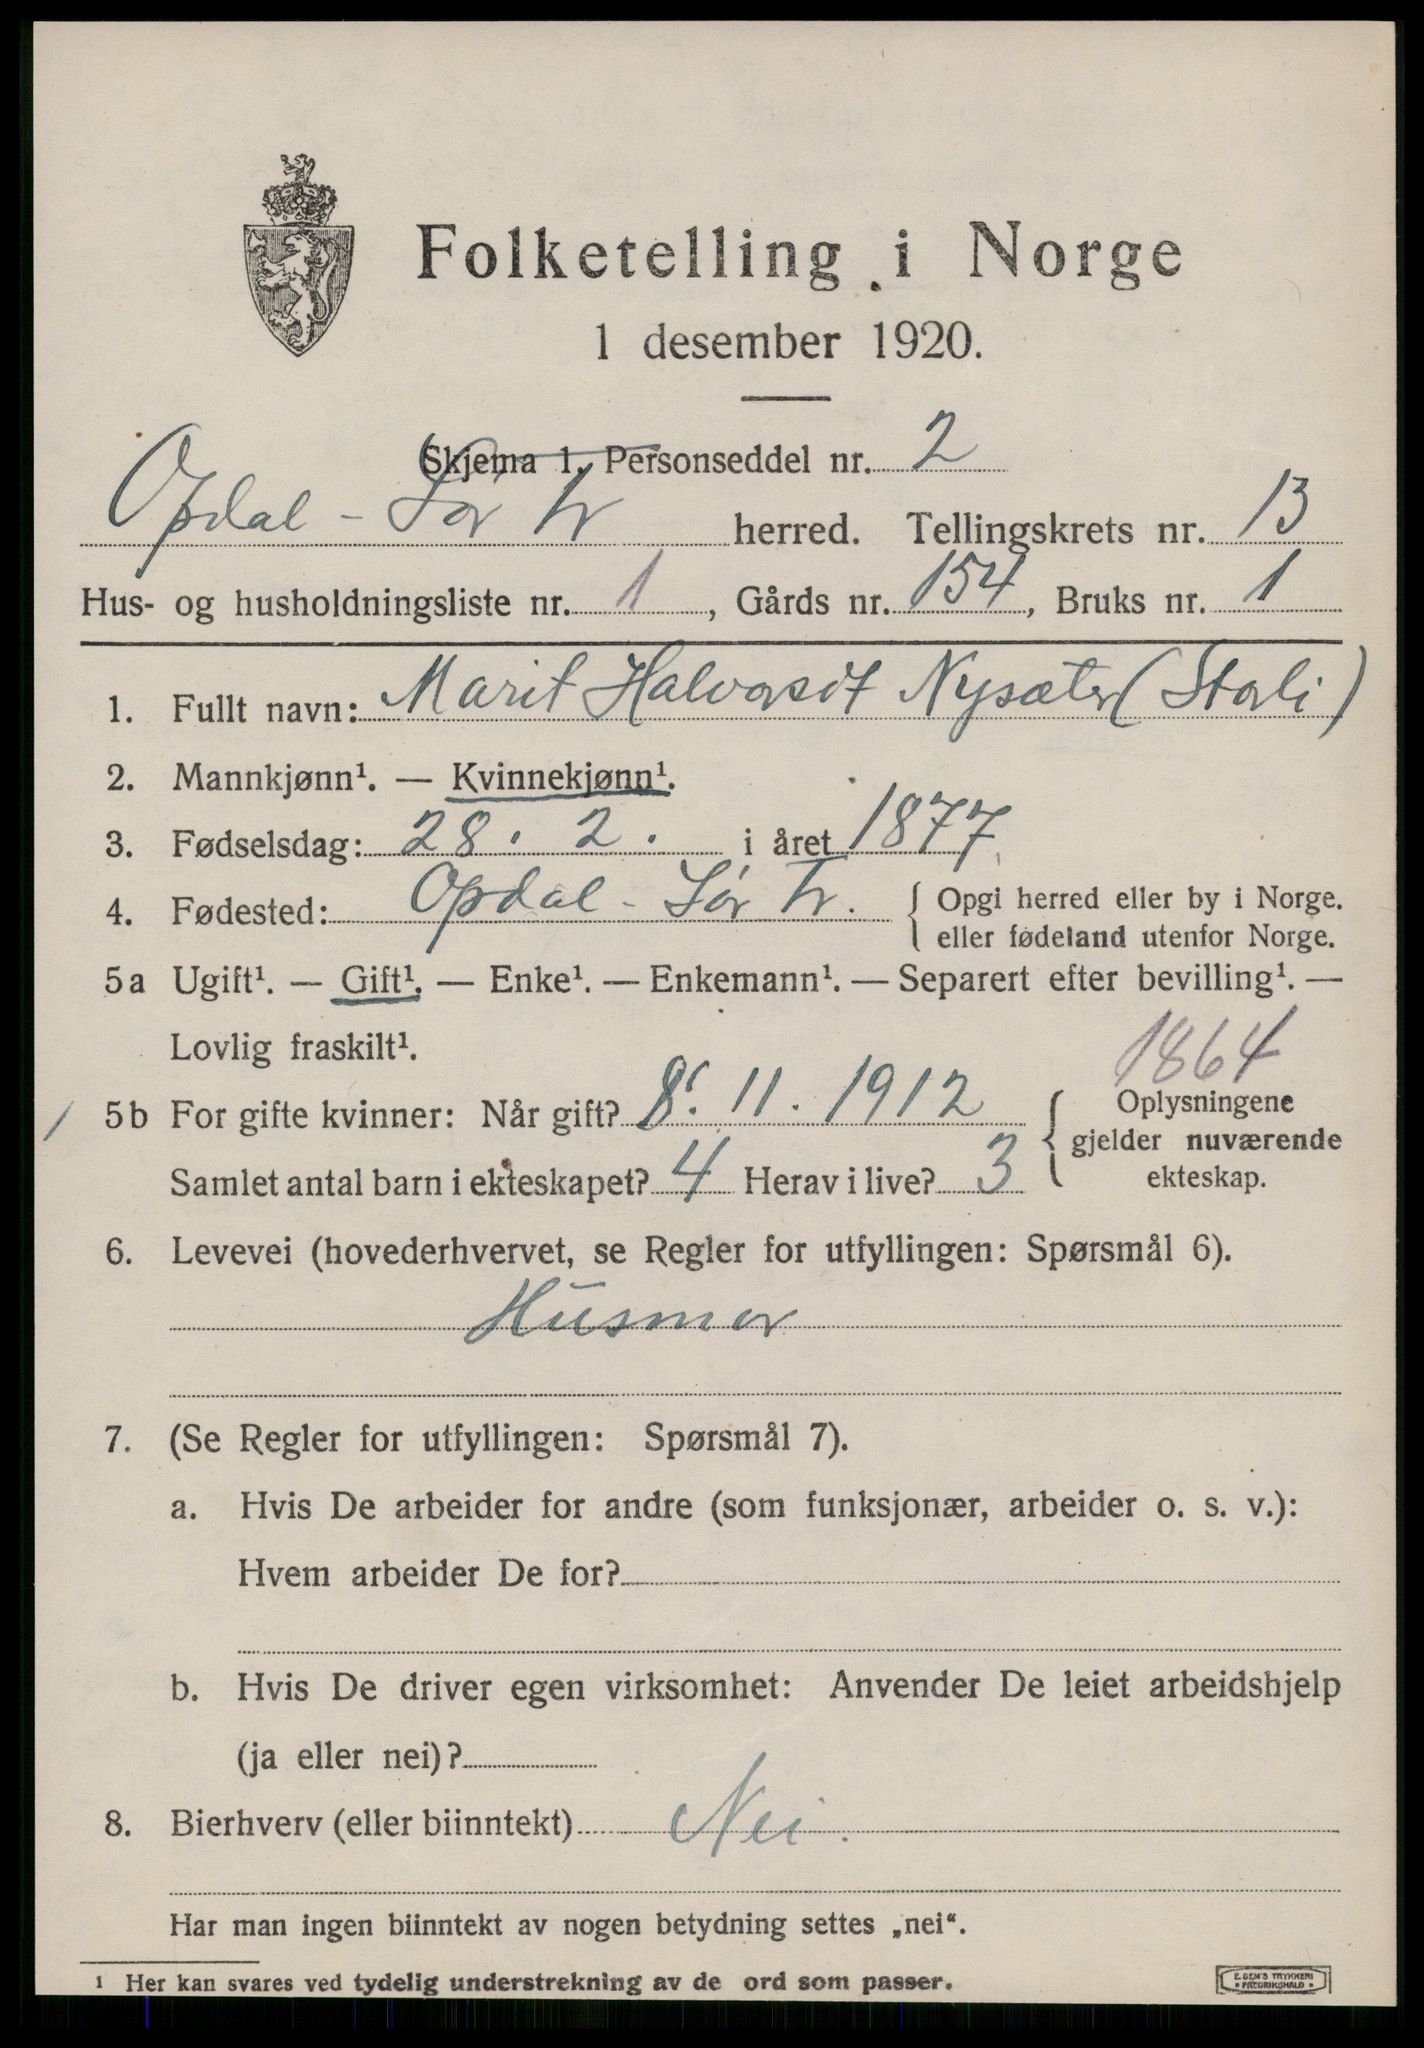 Folketelling i Norge
1 desember 1920.
Skjema 1. Personseddel nr. 2
Opdal - Sør Tr herred. Tellingskrets nr. 13
Hus- og husholdningsliste nr. 1, Gårds nr. 154, Bruks nr. 1
1. Fullt navn: Marit Halvorsdt Nysæter (Storli)
2. Mannkjønn¹. — Kvinnekjønn¹.
3. Fødselsdag: 28. 2. i året 1877
4. Fødested: Opdal - Sør Tr. { Opgi herred eller by i Norge.
eller fødeland utenfor Norge.
5a Ugift¹. — Gift¹. — Enke¹. — Enkemann¹. — Separert efter bevilling¹. —
Lovlig fraskilt¹.
1864
/ 5b For gifte kvinner: Når gift? 8. 11. 1912 { Oplysningene
gjelder nuværende
ekteskap.
Samlet antal barn i ekteskapet? 4 Herav i live? 3
6. Levevei (hovederhvervet, se Regler for utfyllingen: Spørsmål 6).
Husmor
7. (Se Regler for utfyllingen: Spørsmål 7).
a. Hvis De arbeider for andre (som funksjonær, arbeider o. s. v.):
Hvem arbeider De for?
b. Hvis De driver egen virksomhet: Anvender De leiet arbeidshjelp
(ja eller nei)?
8. Bierhverv (eller biinntekt) Nei.
Har man ingen biinntekt av nogen betydning settes „nei“.
¹ Her kan svares ved tydelig understrekning av de ord som passer.
E. SEM'S TRYKKERI
• FREDRIKSHALD •